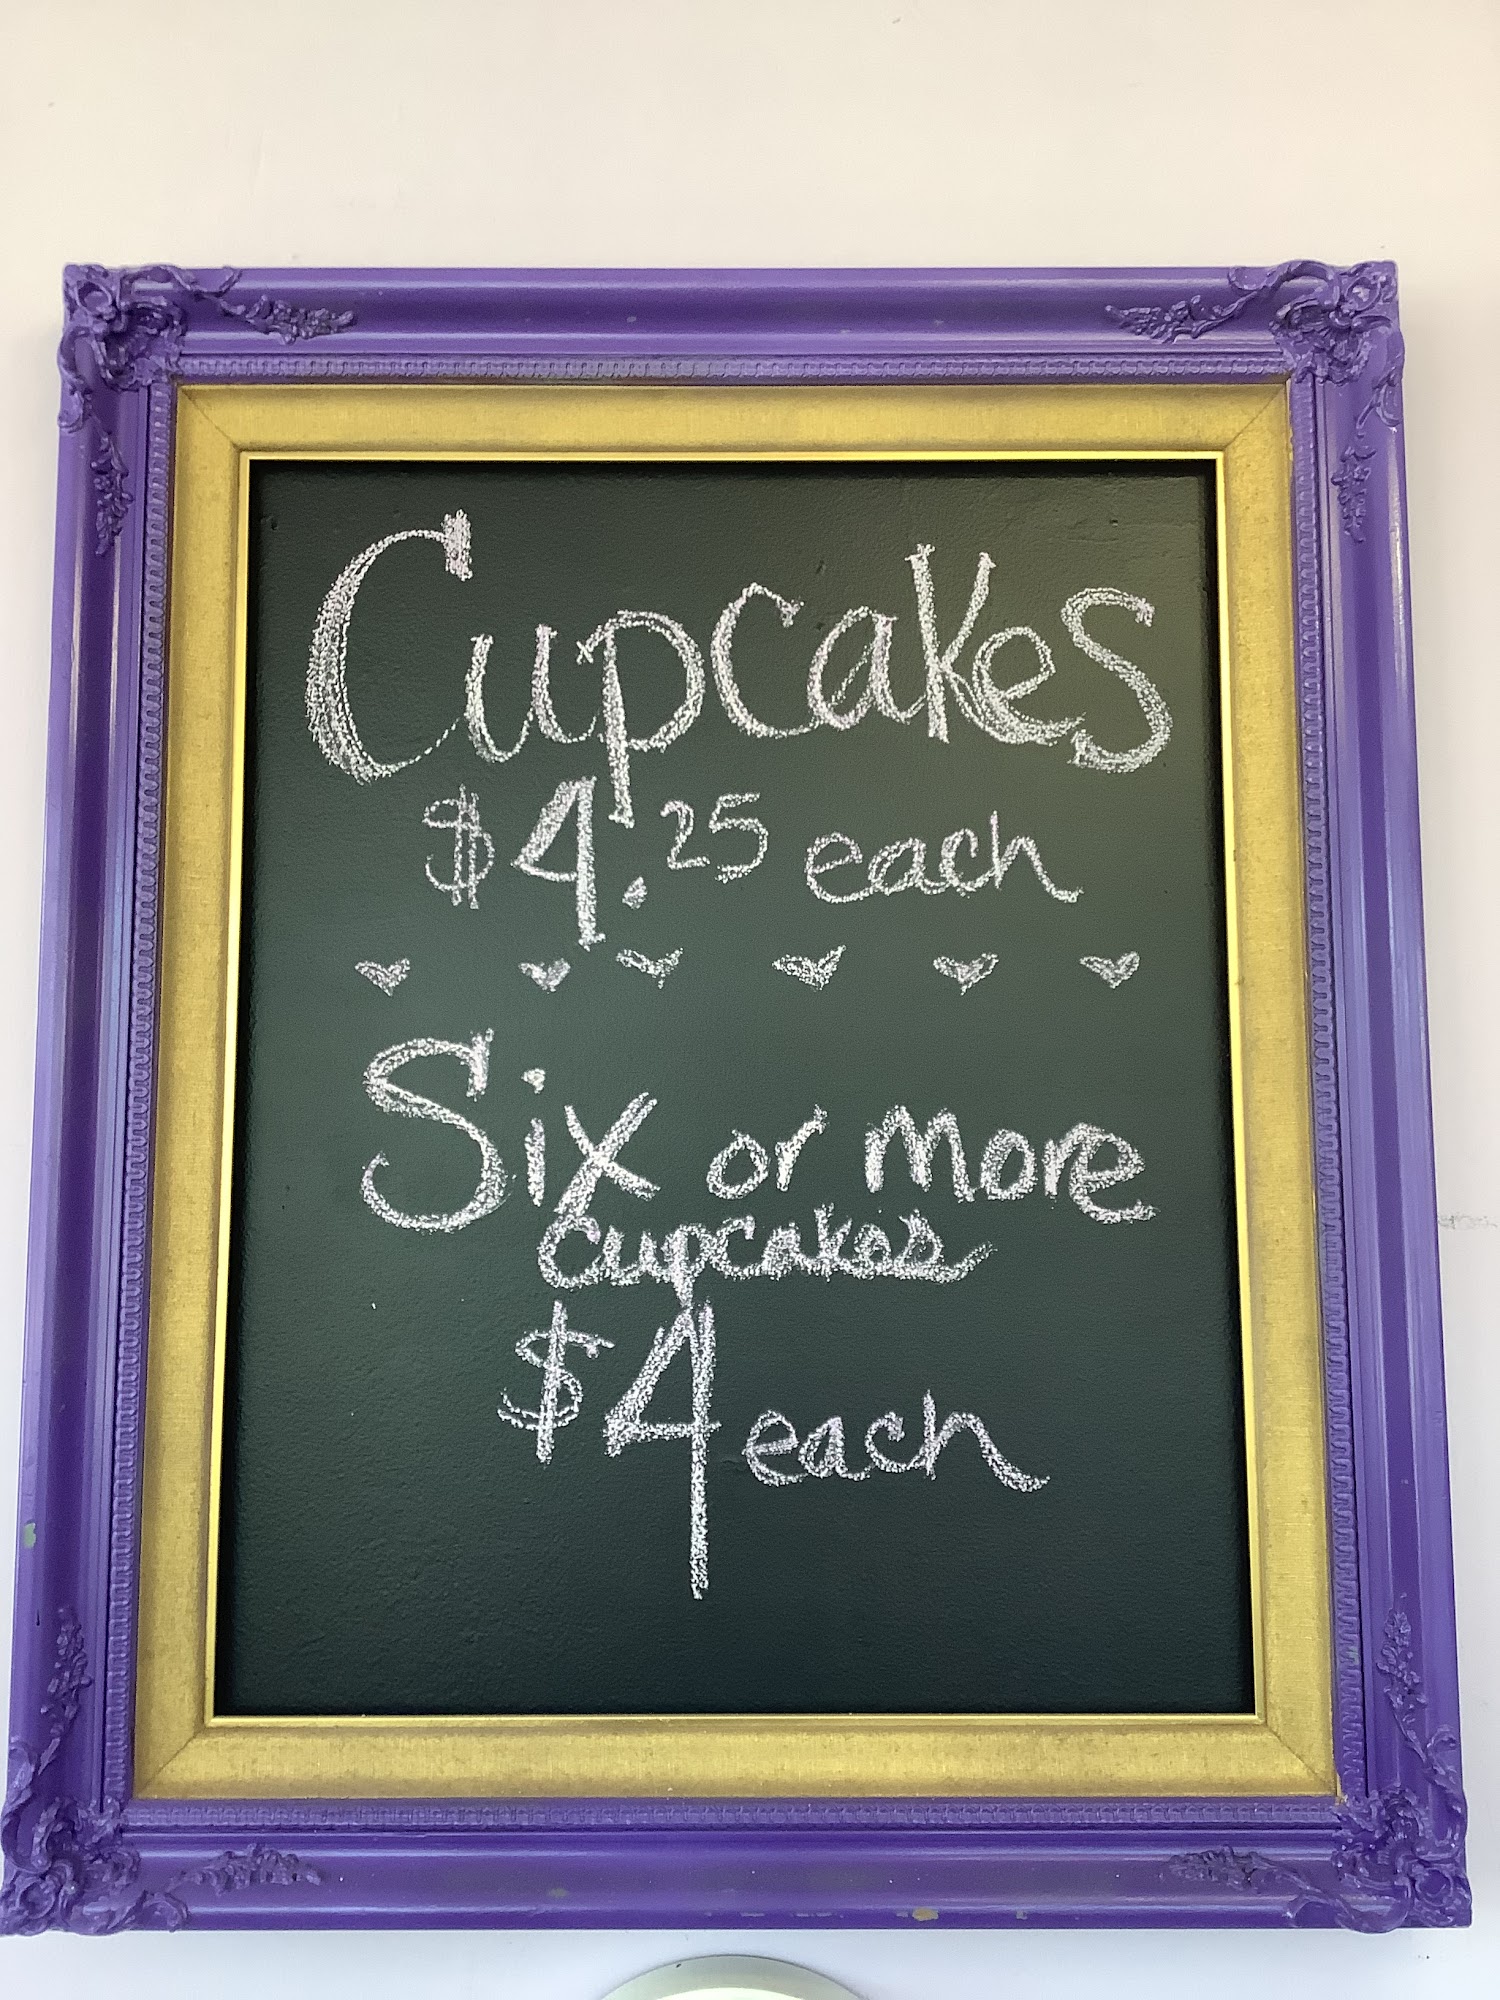 Cupcakes
$4.25 each
Six or more
cupcakes
$4 each